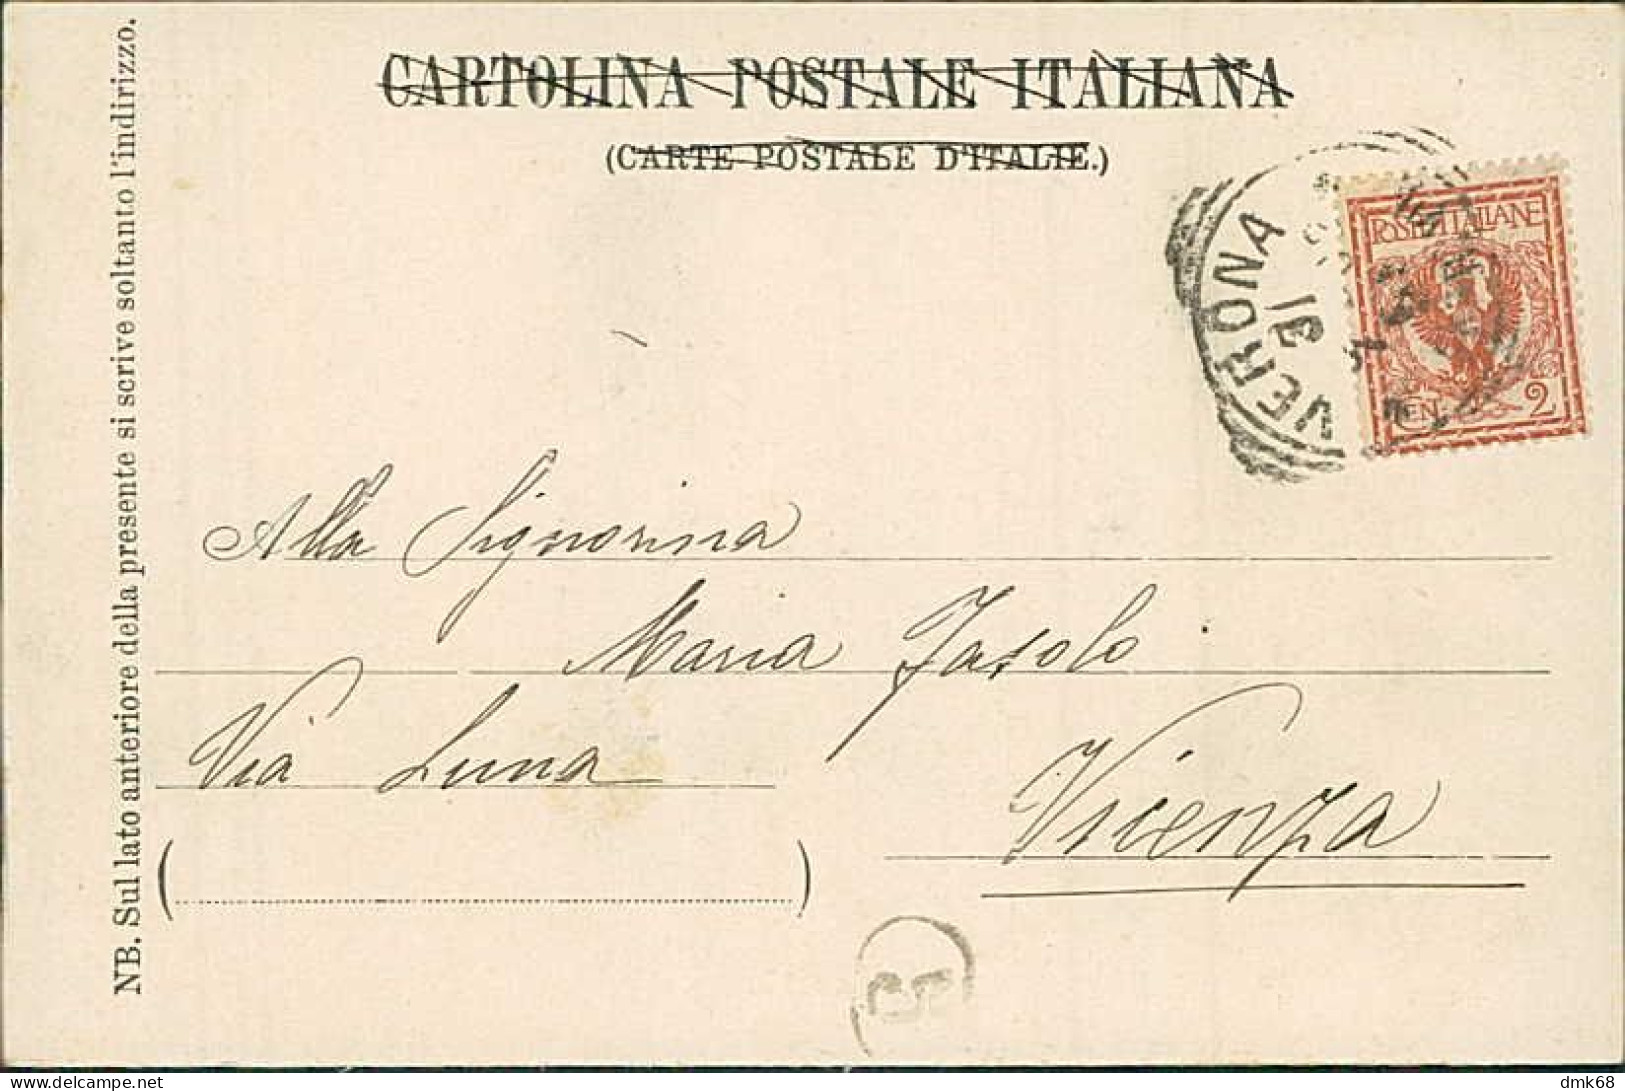 CARTOLINA POSTALE ITALIANA
(CARTE POSTALE D'ITALIE.)
NB. Sul lato anteriore della presente si scrive soltanto l'indirizzo.
VERONA
31
POSTE ITALIANE
CEN. 2
Alla Signorina
Maria Fasolo
Via Luna
Vicenza
5
dmk68